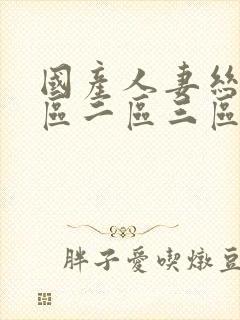 國產人妻絲
區二區三區
胖子愛喫燉豆